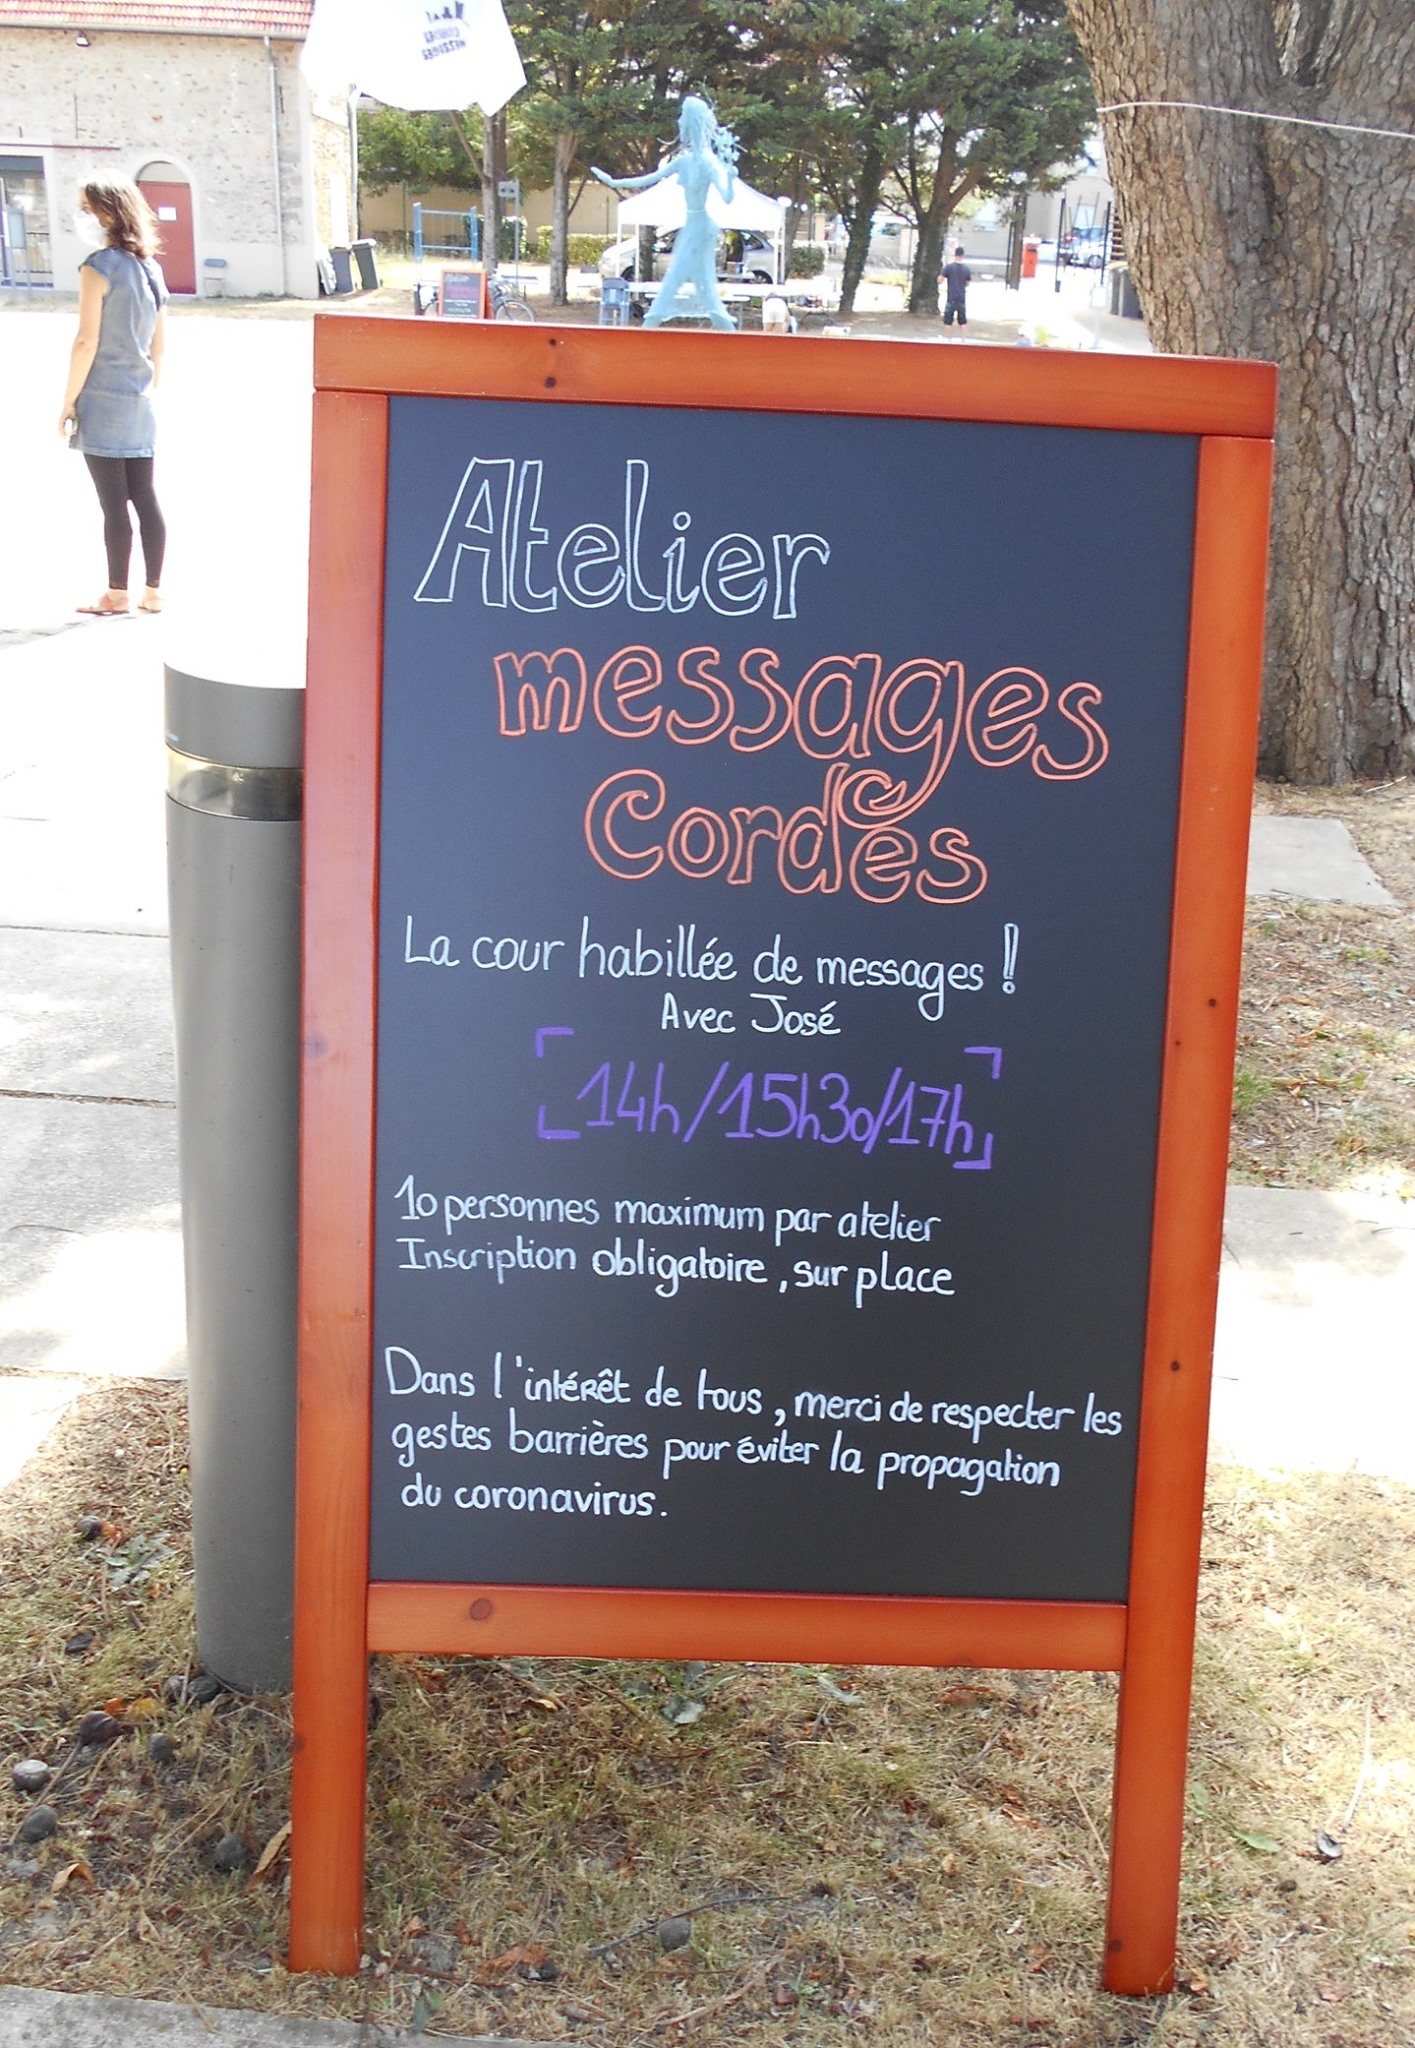 Atelier
messages
Cordes
La cour habillée de messages !
Avec José
14h/15h30/17h
10 personnes maximum par atelier
Inscription obligatoire, sur place
Dans l'intérêt de tous, merci de respecter les
gestes barrières pour éviter la propagation
du coronavirus.